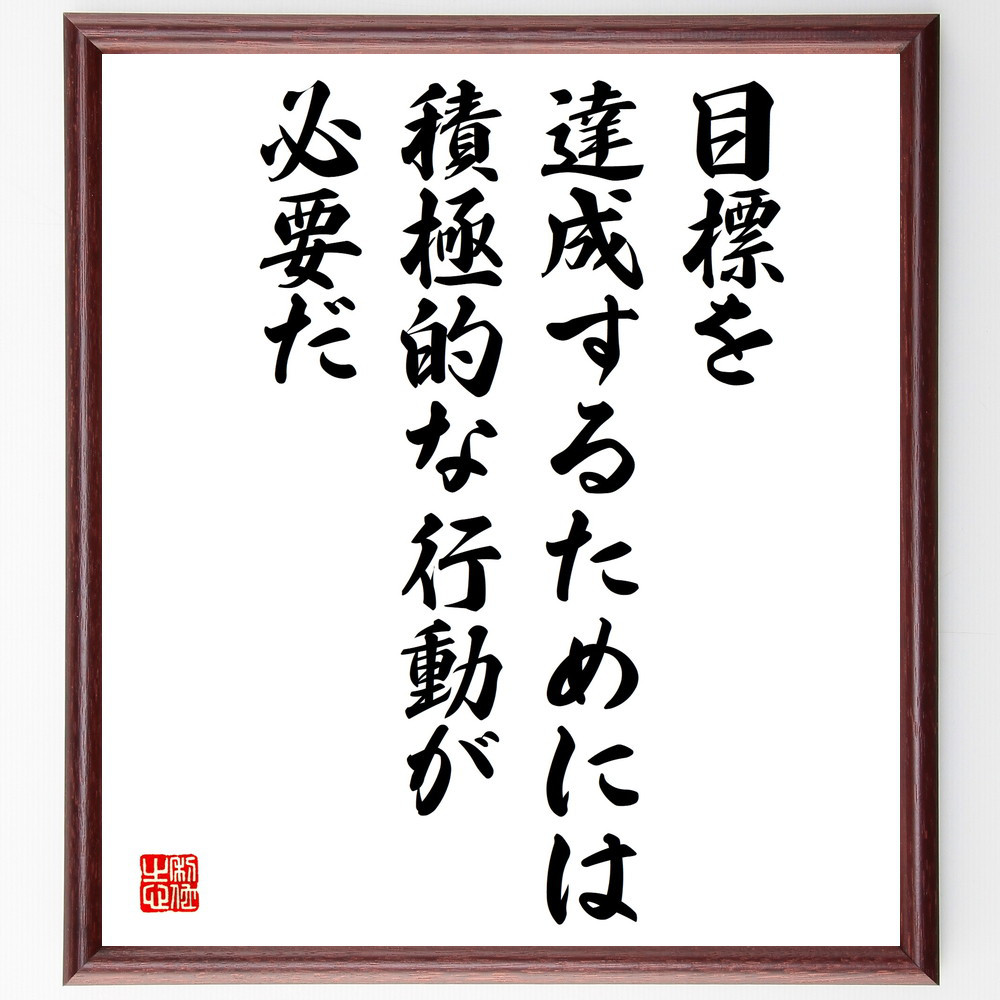 目標を
達成するためには
積極的な行動が
必要だ